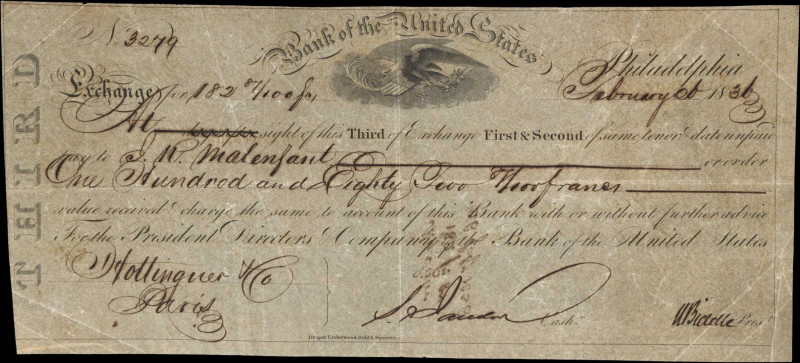 No. 3279
Bank of the United States
Philadelphia
Exchange for 182 8/100 fcs
February 26 1836
THIRD
At sight of this Third of Exchange First & Second of same tenor & date unpaid
pay to J. K. Malenfant or order
One Hundred and Eighty Two 8/100 francs
value received & charge the same to account of this Bank with or without further advice
For the President Directors & Company of the Bank of the United States
Hottinguer & Co
Paris
Cashr
N Biddle Prest
Draper Underwood Bald & Spencer